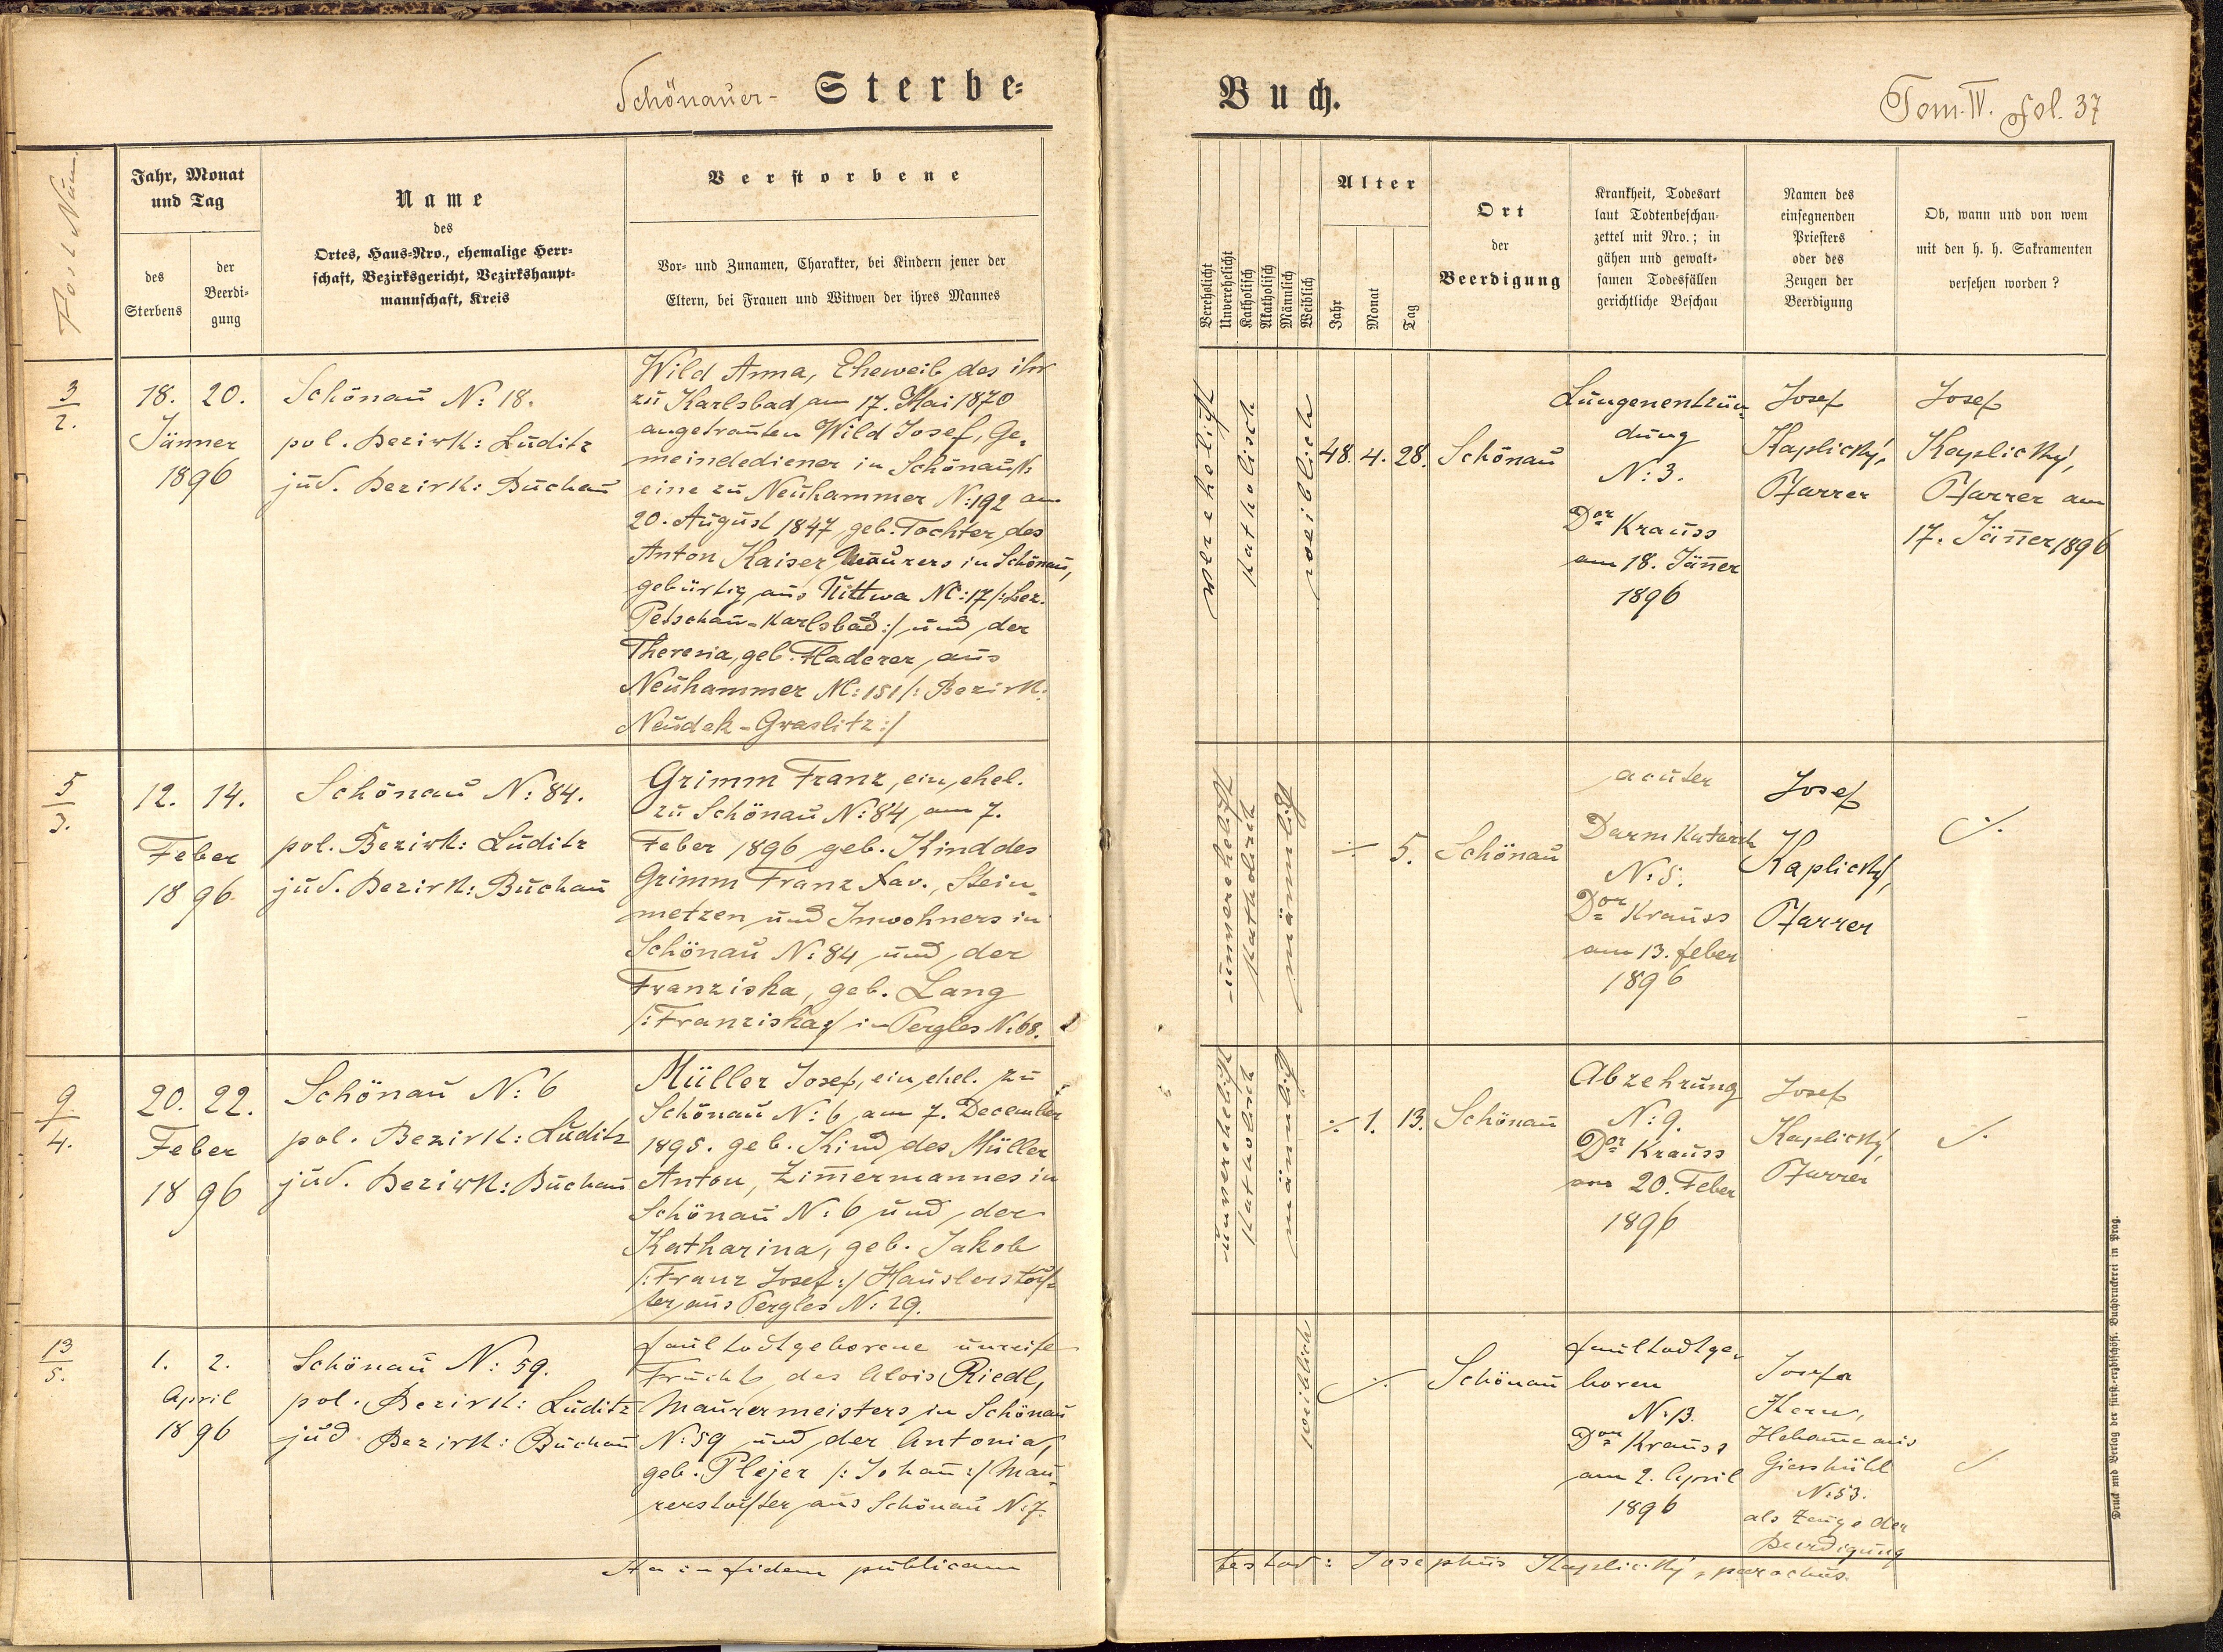 Schönauer- Sterbe-
Buch.
Tom. IV. fol. 37
Post Num.
Jahr, Monat
und Tag
des
Sterbens
der
Beerdi-
gung
Name
des
Ortes, Haus-Nro., ehemalige Herr-
schaft, Bezirksgericht, Bezirkshaupt-
mannschaft, Kreis
Verstorbene
Vor- und Zunamen, Charakter, bei Kindern jener der
Eltern, bei Frauen und Witwen der ihres Mannes
Verehelicht
Unverehelicht
Katholisch
Akatholisch
Männlich
Weiblich
Alter
Jahr
Monat
Tag
Ort
der
Beerdigung
Krankheit, Todesart
laut Todtenbeschau-
zettel mit Nro.; in
gähen und gewalt-
samen Todesfällen
gerichtliche Beschau
Namen des
einsegnenden
Priesters
oder des
Zeugen der
Beerdigung
Ob, wann und von wem
mit den h. h. Sakramenten
versehen worden?
3
2.
18. 20.
Jänner
1896
Schönau N: 18.
pol. Bezirk: Luditz
jud. Bezirk: Buchau
Wild Anna, Eheweib des ihr
zu Karlsbad am 17. Mai 1870
angetrauten Wild Josef, Ge-
meindediener in Schönau,
eine zu Neuhammer N: 192 am
20. August 1847 geb. Tochter des
Anton Kaiser, Maurers in Schönau,
gebürtig aus Uittwa NC: 17 /: Bez.
Petschau-Karlsbad :/ und der
Theresia, geb. Haderer, aus
Neuhammer NC: 151 /: Bezirk:
Neudek-Graslitz :/
verehelicht
katholisch
weiblich
48. 4. 28.
Schönau
Lungenentzün-
dung
N: 3.
Dor Krauss
am 18. Jäner
1896
Josef
Kaplický,
Pfarrer
Josef
Kaplický,
Pfarrer am
17. Jäner 1896
5
3.
12. 14.
Feber
1896
Schönau N: 84.
pol. Bezirk: Luditz
jud. Bezirk: Buchau
Grimm Franz, ein ehel.
zu Schönau N: 84 am 7.
Feber 1896 geb. Kind des
Grimm Franz Xav., Stein-
metzen und Inwohners in
Schönau N: 84 und der
Franziska, geb. Lang
/: Franziska :/ in Pergles N: 68.
unverehelicht
katholisch
männlich
÷ 5.
Schönau
acuter
Darmkatarrh
N: 5.
Dor Krauss
am 13. feber
1896
Josef
Kaplický,
Pfarrer
./.
9
4.
20. 22.
Feber
1896
Schönau N: 6
pol. Bezirk: Luditz
jud. Bezirk: Buchau
Müller Josef, ein ehel. zu
Schönau N: 6 am 7. December
1895. geb. Kind des Müller
Anton, Zimermannes in
Schönau N: 6 und der
Katharina, geb. Jakob
/: Franz Josef :/ Häuslerstoch-
ter aus Pergles N: 29.
unverehelicht
katholisch
männlich
÷ 1. 13.
Schönau
Abzehrung
N: 9.
Dor Krauss
am 20. Feber
1896
Josef
Kaplický,
Pfarrer
./.
13
5.
1. 2.
April
1896
Schönau N: 59.
pol. Bezirk: Luditz
jud Bezirk: Buchau
faultodtgeborene unreife
Frucht des Alois Riedl,
Maurermeisters in Schönau
N: 59 und der Antonia,
geb. Plejer /: Johan :/ Mau-
rerstochter aus Schönau N: 7.
weiblich
./.
Schönau
faultodtge-
boren
N: 13.
Dor Krauss
am 2. April
1896
Josefa
Kern,
Hebame aus
Giesshübl
N: 53.
als Zeuge der
Beerdigung
./.
Ita in fidem publicam
testor: Josephus Kaplický, parochus.
Druck und Verlag der fürst.-erzbischöfl. Buchdruckerei in Prag.